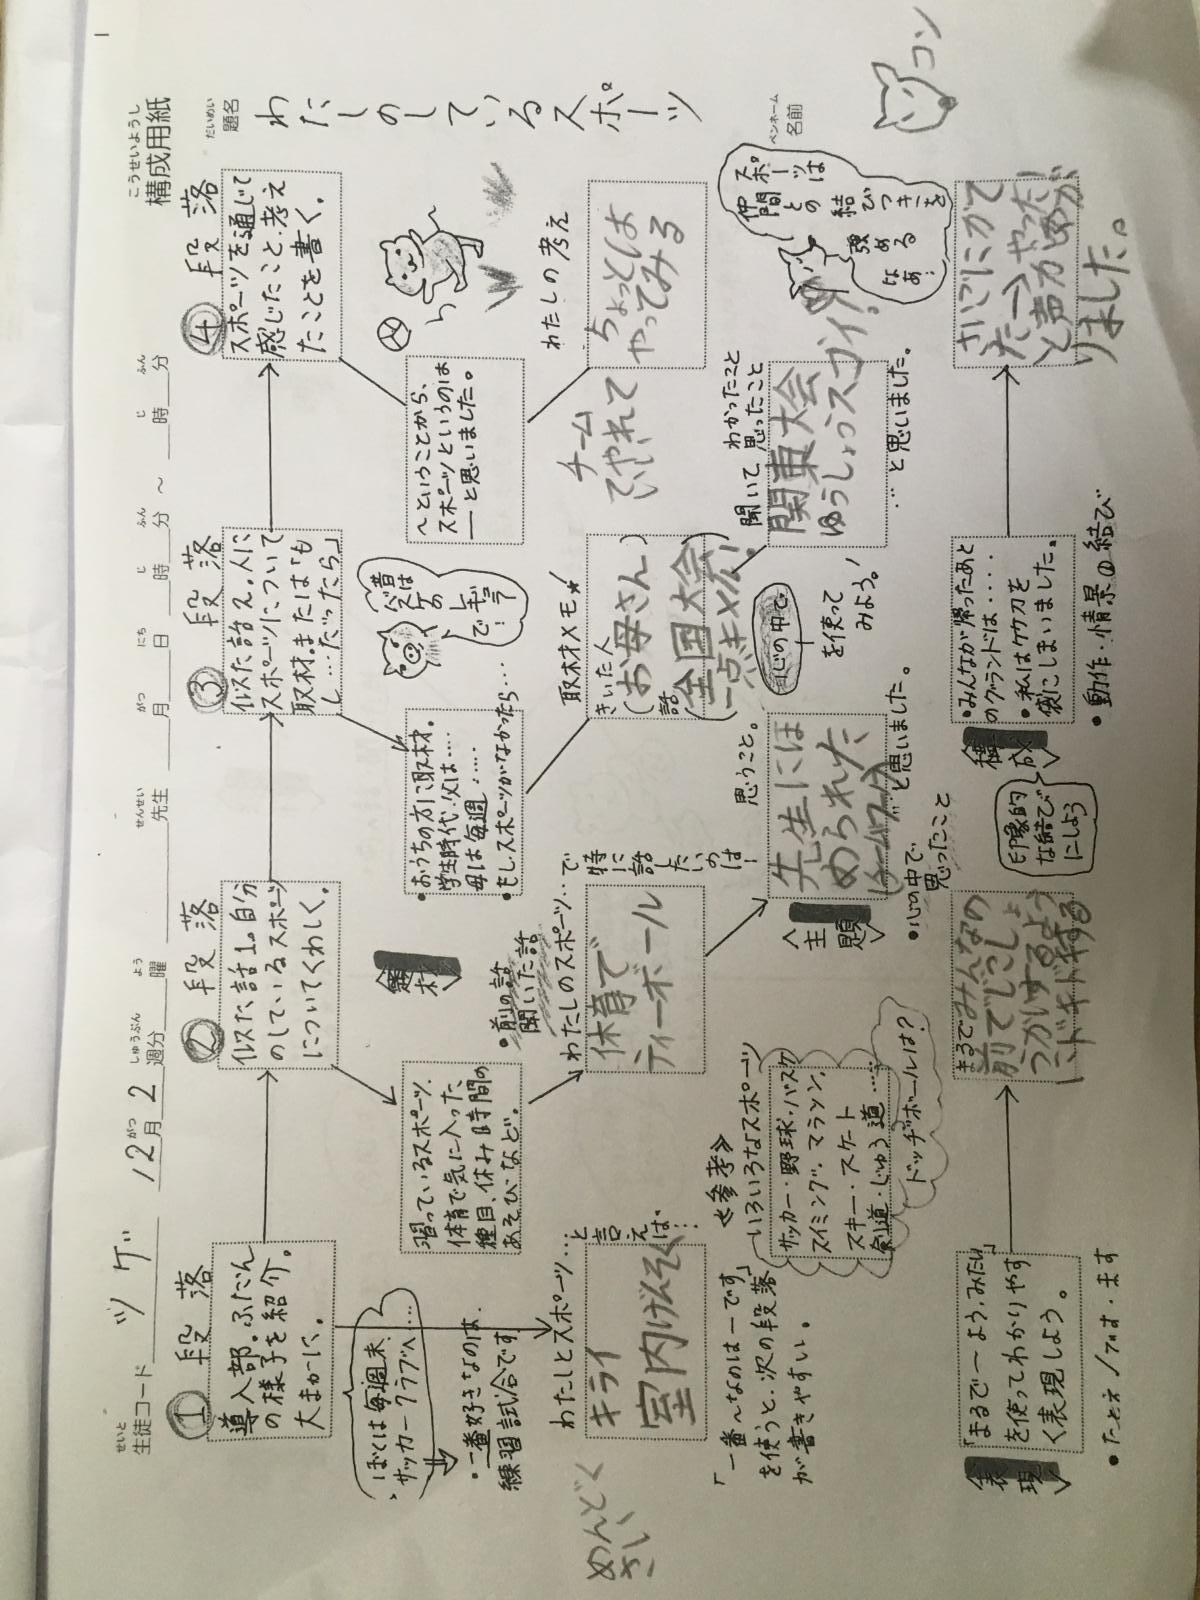 こうせいようし
構成用紙
せいと
生徒コード ツゲ 12月2週分 曜 先生 月 日 時 分 ～ 時 分
がつ しゅうぶん よう せんせい がつ にち じ ふん じ ふん
だいめい
題名
わたしのしているスポーツ
① 段落
導入部。ふだん
の様子を紹介。
大まかに。
② 段落
似た話1。自分
のしているスポーツ
についてくわしく。
③ 段落
似た話2。人に
スポーツについて
取材。または「も
し…だったら」
④ 段落
スポーツを通じて
感じたこと・考え
たことを書く。
ぼくは毎週末、
サッカークラブへ…
・一番好きなのは、
練習試合です
習っているスポーツ、
体育で気に入った
種目、休み時間の
あそび・など。
〈題材〉
・前の話
聞いた話
・おうちの方に取材。
学生時代、父は……
母は毎週……
・もしスポーツがなかったら…
昔は
バスケの
レギュラー
で！
～ということから、
スポーツというのは
――と思いました。
わたしとスポーツ…と言えば、…
キライ
室内げんそく
めんどく
さい
わたしのスポーツ…で
特に話したいのは！
体育で
ティーボール
取材メモ★
きいた人
(お母さん)
話
(全国大会
一点キメ広！
チーム
でやれて
いい
わたしの考え
ちょっとは
やってみる
「一番～なのは―です」
を使うと、次の段落
が書きやすい。
≪参考≫
いろいろなスポーツ
サッカー・野球・バスケ
スイミング・マラソン、
スキー・スケート
剣道・じゅう道……
ドッヂボールは？
〈主題〉
思うこと。
先生にほ
められた
と思いました。
・心の中で
思ったこと
心の中で
を使って
みよう。！
聞いて、わかったこと
思ったこと
関東大会
ゆうしょうスゴイ！
…と思いました。
スポーツは
仲間との
結びつきを
強める
なあ！
ペンネーム
名前
コン
〈表現〉
「まるで～よう、みたい」
を使ってわかりやす
く表現しよう。
・たとえ
まるでみんなの
前でじっしょ
うかいするよう
にドキドキする
印象的
な結び
にしよう
〈構成〉
・みんなが帰ったあと
のグランドは・・・・
・私はグラブを
袋にしまいました。
・動作・情景の結び
さいごにかて
た―→やった！
と声があが
りました。